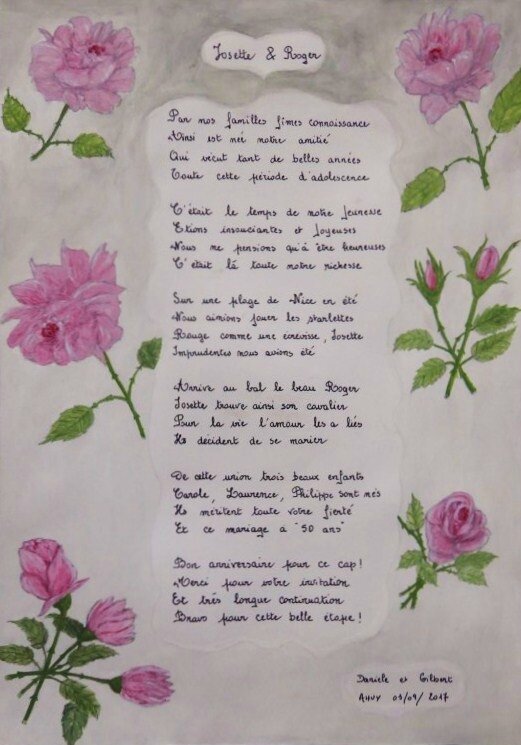 Josette & Roger
Par nos familles fîmes connaissance
Ainsi est née notre amitié
Qui vécut tant de belles années
Toute cette période d'adolescence
C'était le temps de notre jeunesse
Etions insouciantes et joyeuses
Nous ne pensions qu'à être heureuses
C'était là toute notre richesse
Sur une plage de Nice en été
Nous aimions jouer les starlettes
Rouge comme une écrevisse, Josette
Imprudentes nous avions été
Arrive au bal le beau Roger
Josette trouve ainsi son cavalier
Pour la vie l'amour les a liés
Ils décident de se marier
De cette union trois beaux enfants
Carole, Laurence, Philippe sont nés
Ils méritent toute votre fierté
Et ce mariage a "50 ans"
Bon anniversaire pour ce cap !
Merci pour votre invitation
Et très longue continuation
Bravo pour cette belle étape !
Danièle et Gilbert
AHUY 03/09/2017